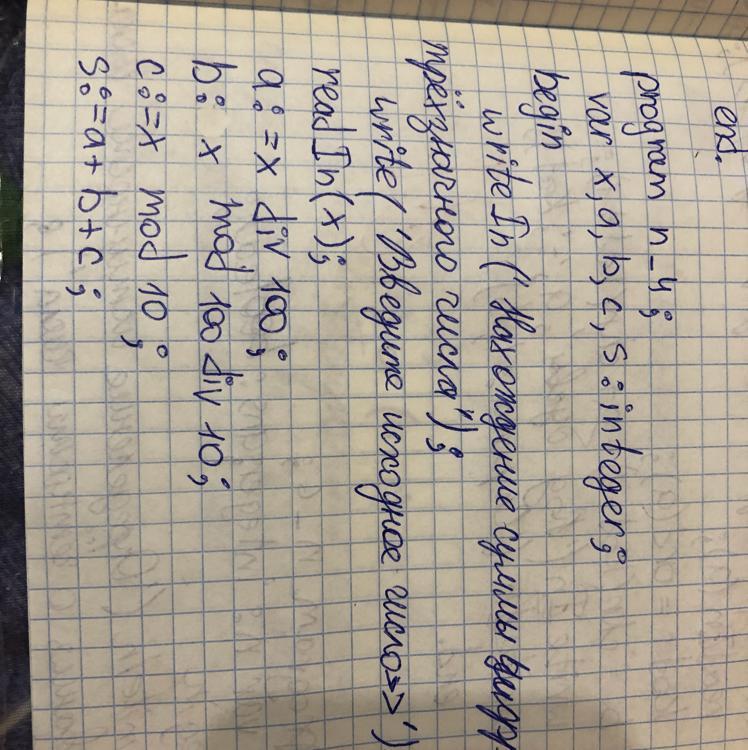 end.
program n_4;
var x,a,b,c,s:integer;
begin
writeln('Нахождение суммы цифр
трёхзначного числа');
write('Введите исходное число>>')
readln(x);
a:=x div 100;
b: x mod 100 div 10;
c:=x mod 10;
s:=a+b+c;